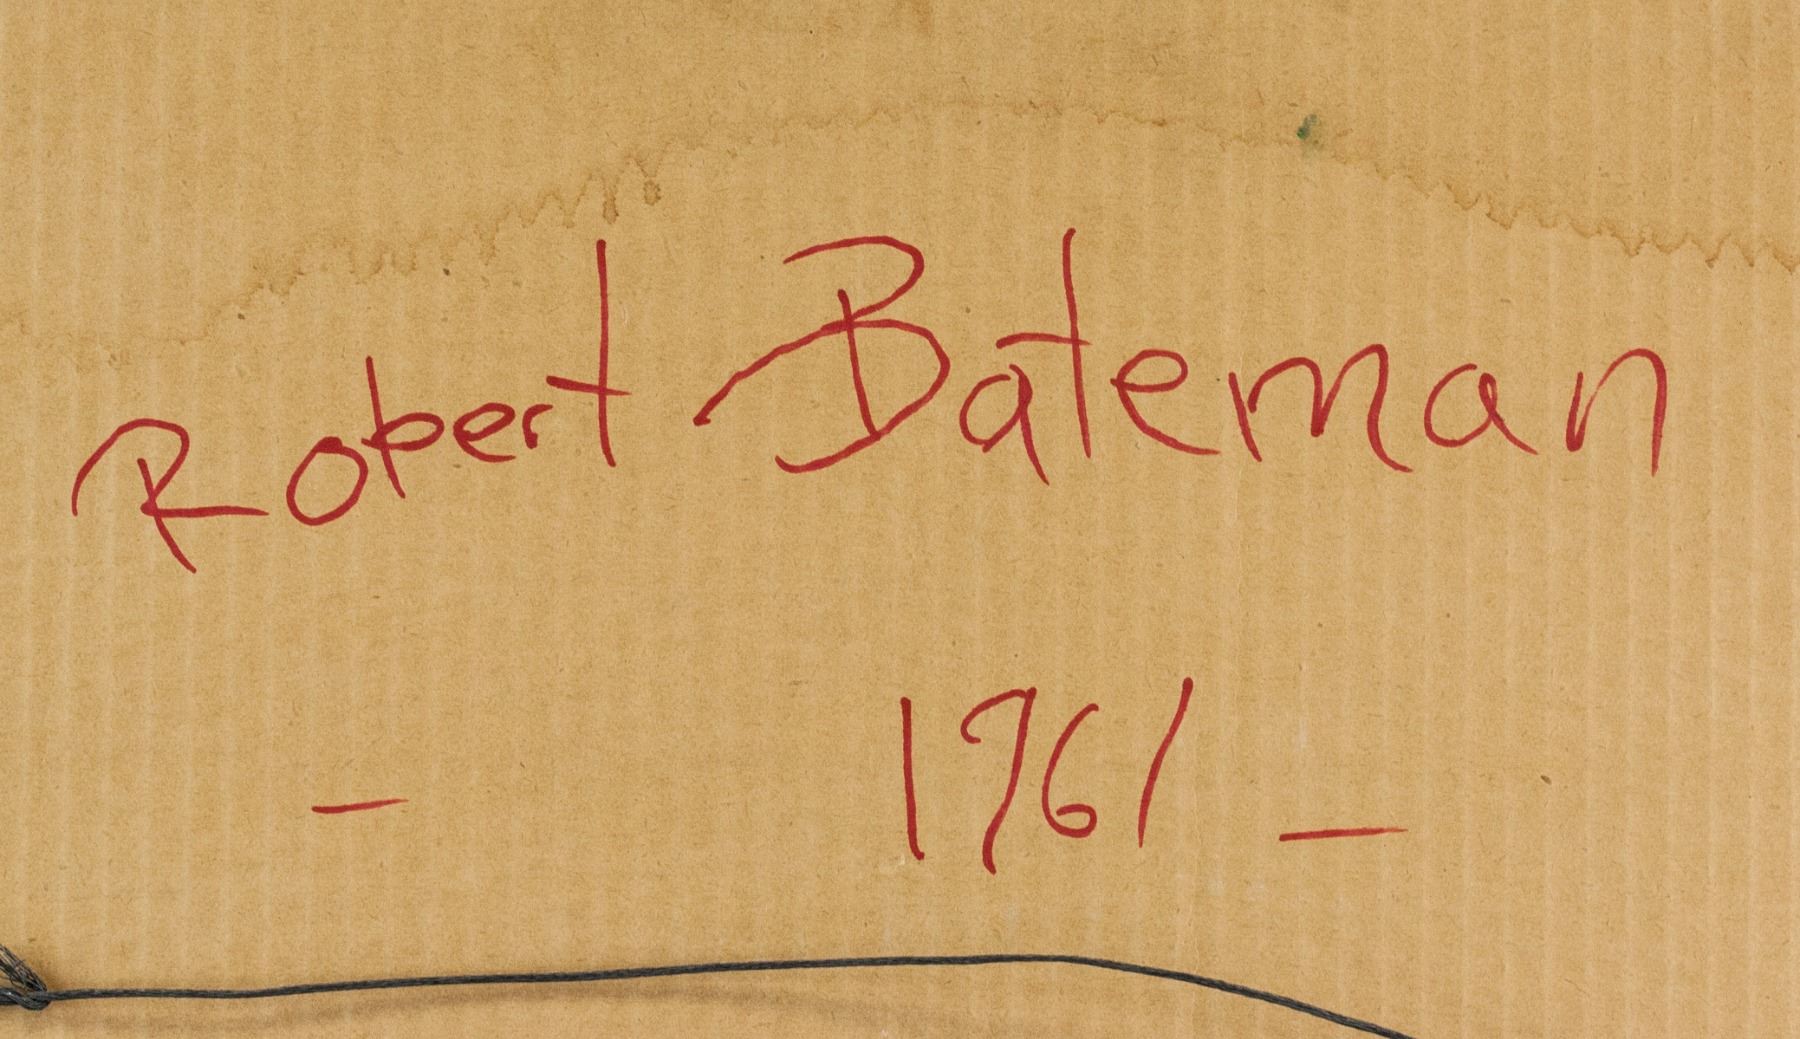 Robert Bateman
– 1961 –